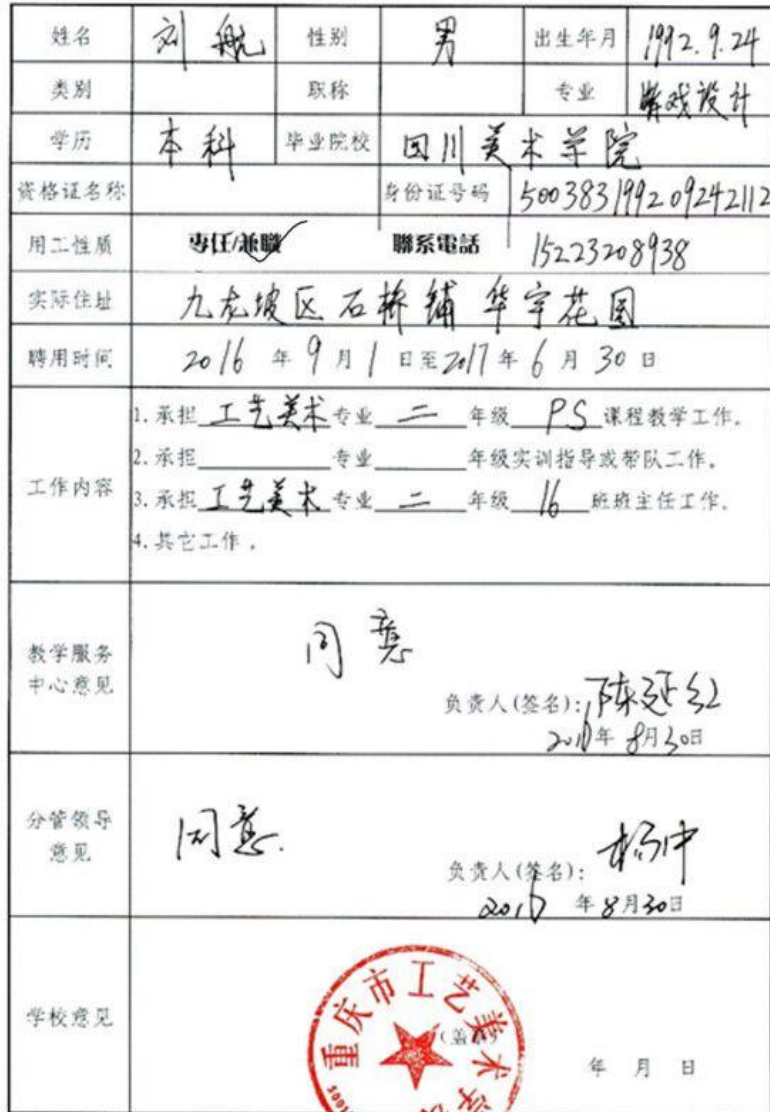 姓名 刘航 性别 男 出生年月 1992.9.24
类别 职称 专业 游戏设计
学历 本科 毕业院校 四川美术学院
资格证名称 身份证号码 500383199209242112
用工性质 專任/兼職 聯系電話 15223208938
实际住址 九龙坡区石桥铺华宇花园
聘用时间 2016 年 9 月 1 日至 2017 年 6 月 30 日
工作内容
1.承担 工艺美术 专业 二 年级 PS 课程教学工作。
2.承担 专业 年级实训指导或带队工作。
3.承担 工艺美术 专业 二 年级 16 班班主任工作。
4.其它工作。
教学服务
中心意见
同意
负责人(签名): 陈延红
2016年 8月30日
分管领导
意见
同意.
负责人(签名): 杨中
2016 年 8月30日
学校意见
重庆市工艺美术学
(盖章)
年 月 日